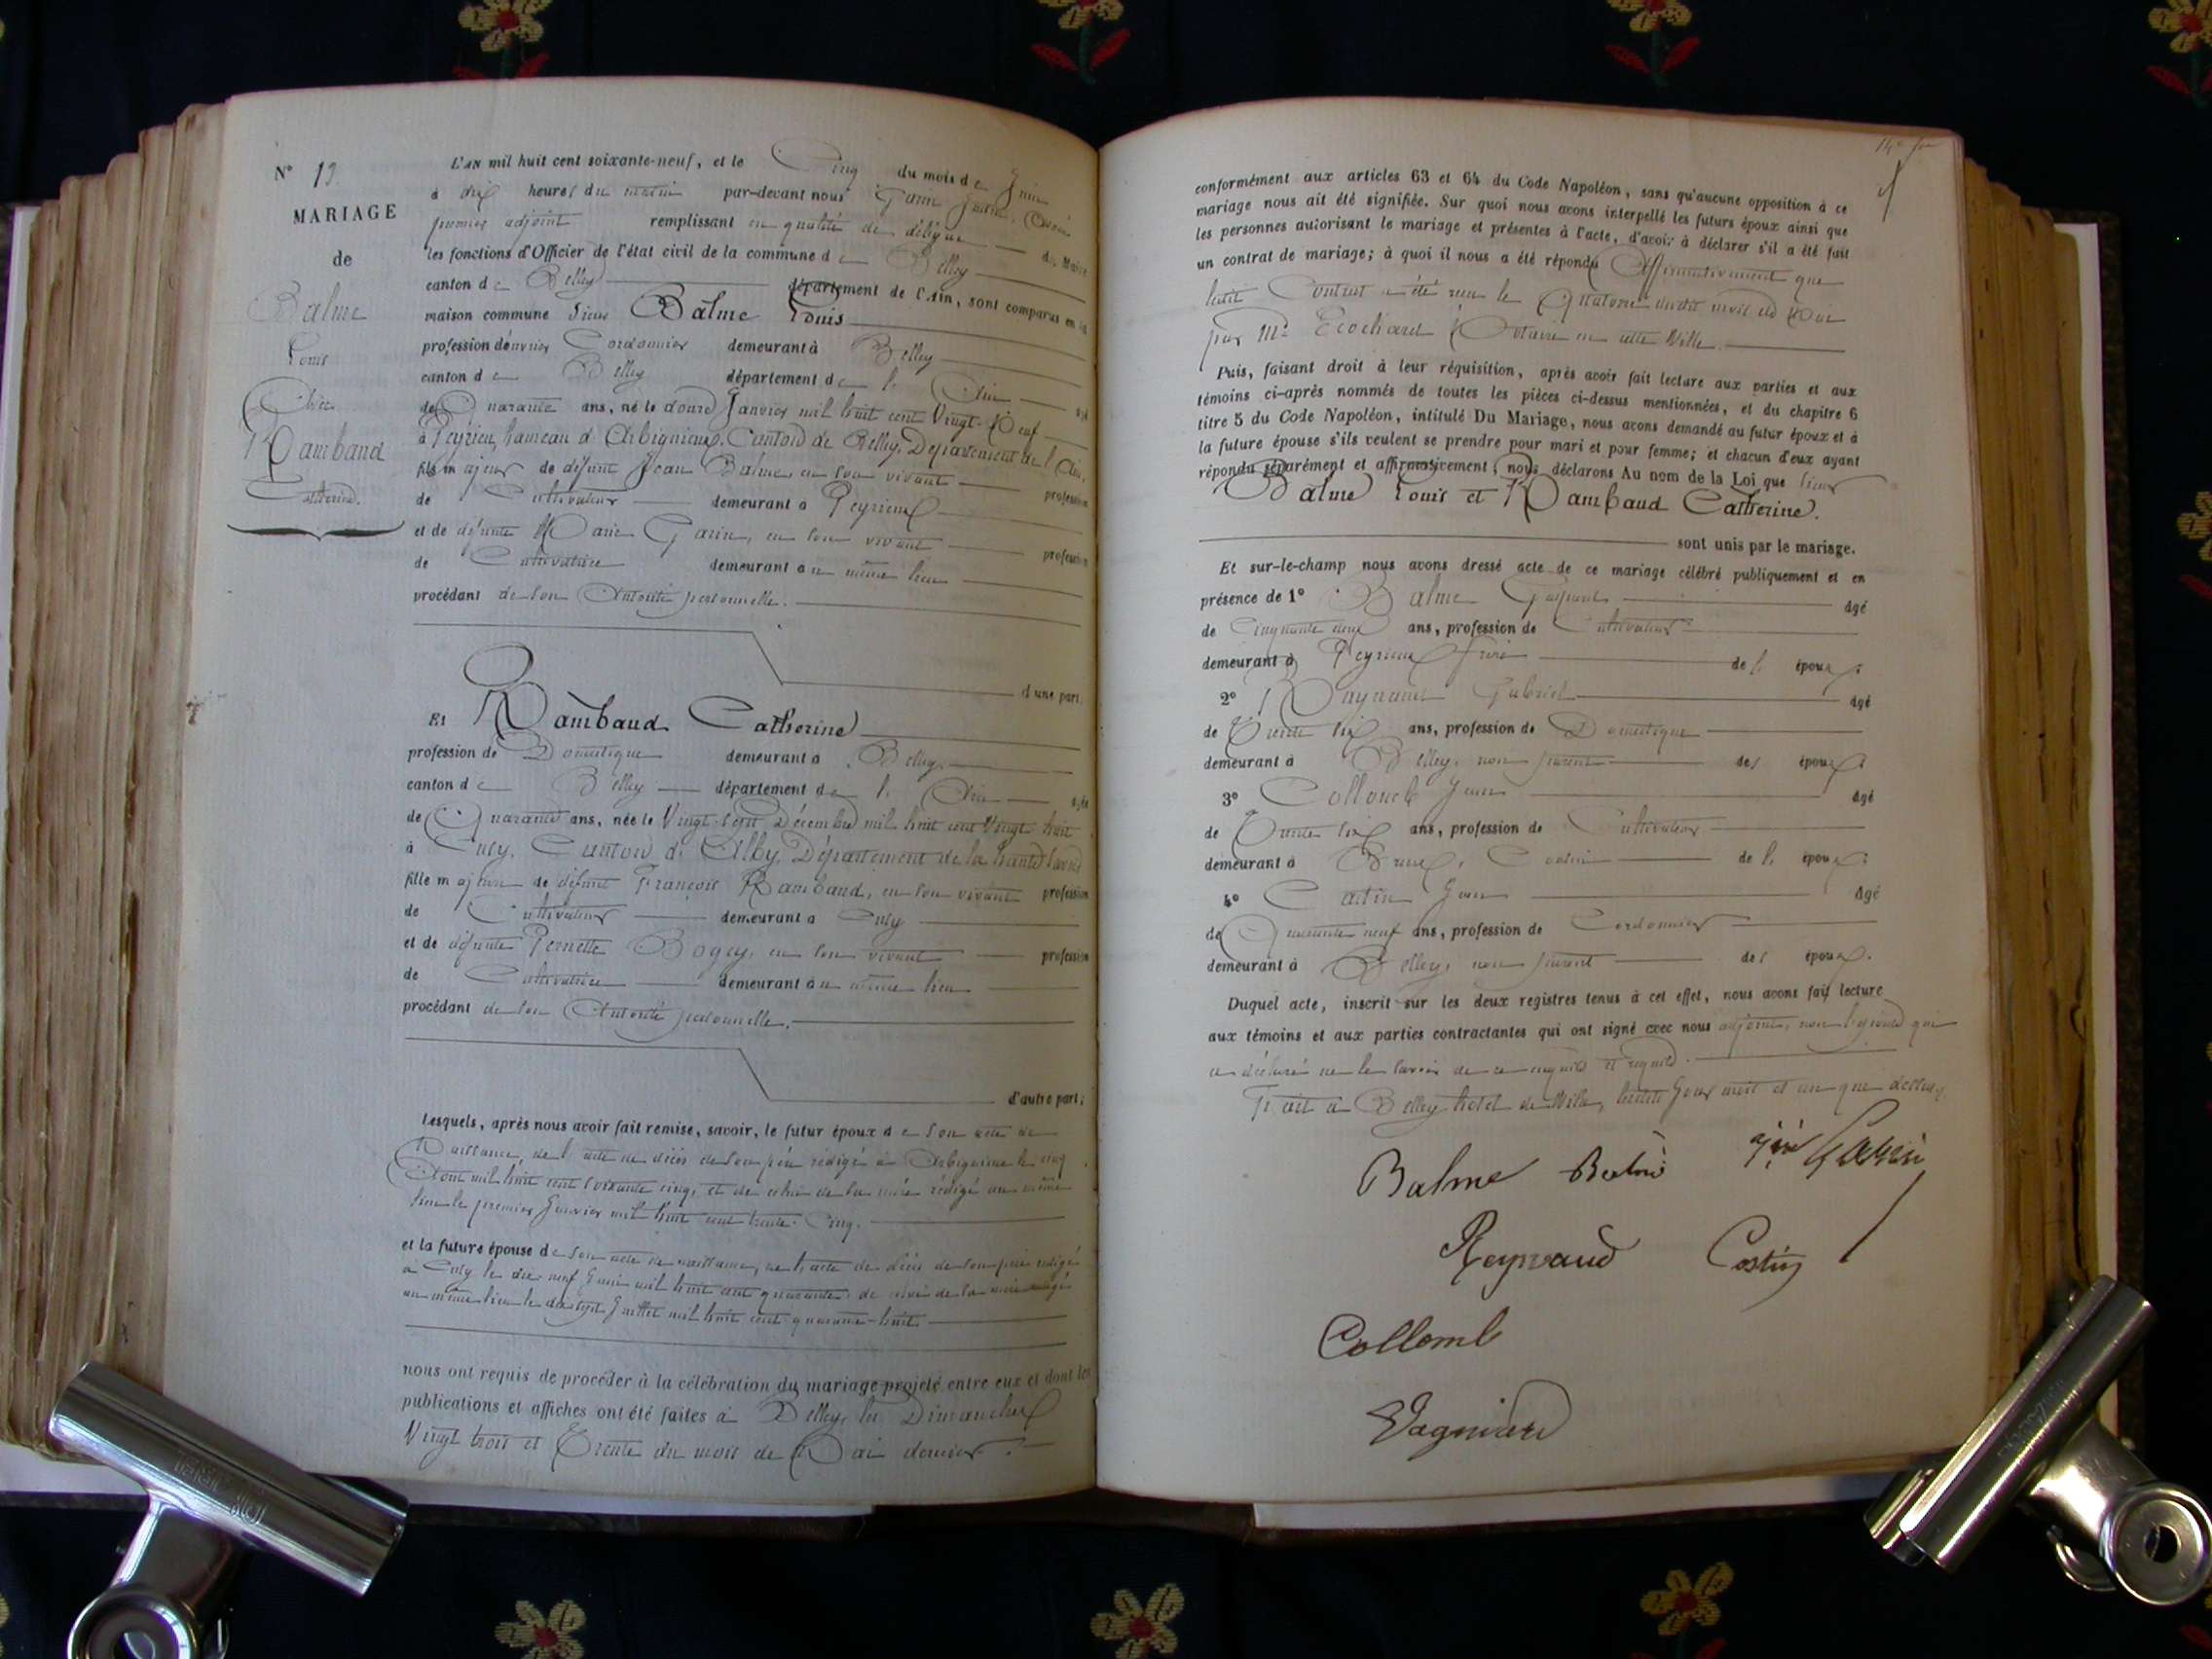 N° 13.
MARIAGE
de
Balme
Louis
Avec
Rambaud
Catherine.
L'AN mil huit cent soixante-neuf, et le Cinq du mois de Juin
à dix heures du matin par-devant nous
premier adjoint remplissant en qualité de délégué du Maire
les fonctions d'Officier de l'état civil de la commune de Belley
canton de Belley département de l'Ain, sont comparus en la
maison commune Sieur Balme Louis
profession d'ouvrier Cordonnier demeurant à Belley
canton de Belley département de l'Ain âgé
de Quarante ans, né le douze Janvier mil huit cent Vingt-Neuf
à Peyrieu, hameau d'Arbignieux, Canton de Belley, Département de l'Ain,
fils majeur de défunt Jean Balme, en son vivant profession
de Cultivateur demeurant à Peyrieux
et de défunte Marie Garin, en son vivant profession
de Cultivatrice demeurant au même lieu
procédant de son Autorité personnelle.
d'une part.
Et Rambaud Catherine
profession de Domestique demeurant à Belley
canton de Belley département de l'Ain âgée
de Quarante ans, née le Vingt-Sept Décembre mil huit cent Vingt huit
à Cusy, Canton d'Alby, Département de la haute Savoie
fille majeure de défunt François Rambaud, en son vivant profession
de Cultivateur demeurant à Cusy
et de défunte Pernette Bogey, en son vivant profession
de Cultivatrice demeurant au même lieu
procédant de son Autorité personnelle.
d'autre part;
Lesquels, après nous avoir fait remise, savoir, le futur époux de son acte de
Naissance, de l'acte de décès de son père rédigé à Arbignieu le cinq
Aout mil huit cent soixante cinq, et de celui de sa mère rédigé au même
lieu le premier Janvier mil huit cent trente-Cinq.
et la future épouse de son acte de naissance, de l'acte de décès de son père rédigé
à Cusy le dix neuf Juin mil huit cent quarante, de celui de sa mère rédigé
au même lieu le dix sept Juillet mil huit cent quarante-huit.
nous ont requis de procéder à la célébration du mariage projeté entre eux et dont les
publications et affiches ont été faites à Belley, les Dimanches
Vingt trois et Trente du mois de Mai dernier.
conformément aux articles 63 et 64 du Code Napoléon, sans qu'aucune opposition à ce
mariage nous ait été signifiée. Sur quoi nous avons interpellé les futurs époux ainsi que
les personnes autorisant le mariage et présentes à l'acte, d'avoir à déclarer s'il a été fait
un contrat de mariage; à quoi il nous a été répondu Affirmativement que
ledit Contrat a été reçu le Quatorze dudit mois de Mai
par Me Ecochard Notaire en cette Ville.
Puis, faisant droit à leur réquisition, après avoir fait lecture aux parties et aux
témoins ci-après nommés de toutes les pièces ci-dessus mentionnées, et du chapitre 6
titre 5 du Code Napoléon, intitulé Du Mariage, nous avons demandé au futur époux et à
la future épouse s'ils veulent se prendre pour mari et pour femme; et chacun d'eux ayant
répondu séparément et affirmativement, nous déclarons Au nom de la Loi que Sieur
Balme Louis et Rambaud Catherine.
sont unis par le mariage.
Et sur-le-champ nous avons dressé acte de ce mariage célébré publiquement et en
présence de 1° Balme Gaspard âgé
de Cinquante deux ans, profession de Cultivateur
demeurant à Peyrieux frère de l'époux;
2° Raynaud Gabriel âgé
de Trente six ans, profession de Domestique
demeurant à Belley, non parent des époux;
3° Collomb Jean âgé
de Trente six ans, profession de Cultivateur
demeurant à Cousin de l'époux;
4° Castin Jean âgé
de Quarante neuf ans, profession de Cordonnier
demeurant à Belley, non parent des époux.
Duquel acte, inscrit sur les deux registres tenus à cet effet, nous avons fait lecture
aux témoins et aux parties contractantes qui ont signé avec nous adjoint, non l'épouse qui
a déclaré ne le savoir de ce enquise et requise.
Fait à Belley hotel de Ville, lesdits Jour mois et an que dessus.
Balme Balme Garin
Reynaud Castin
Collomb